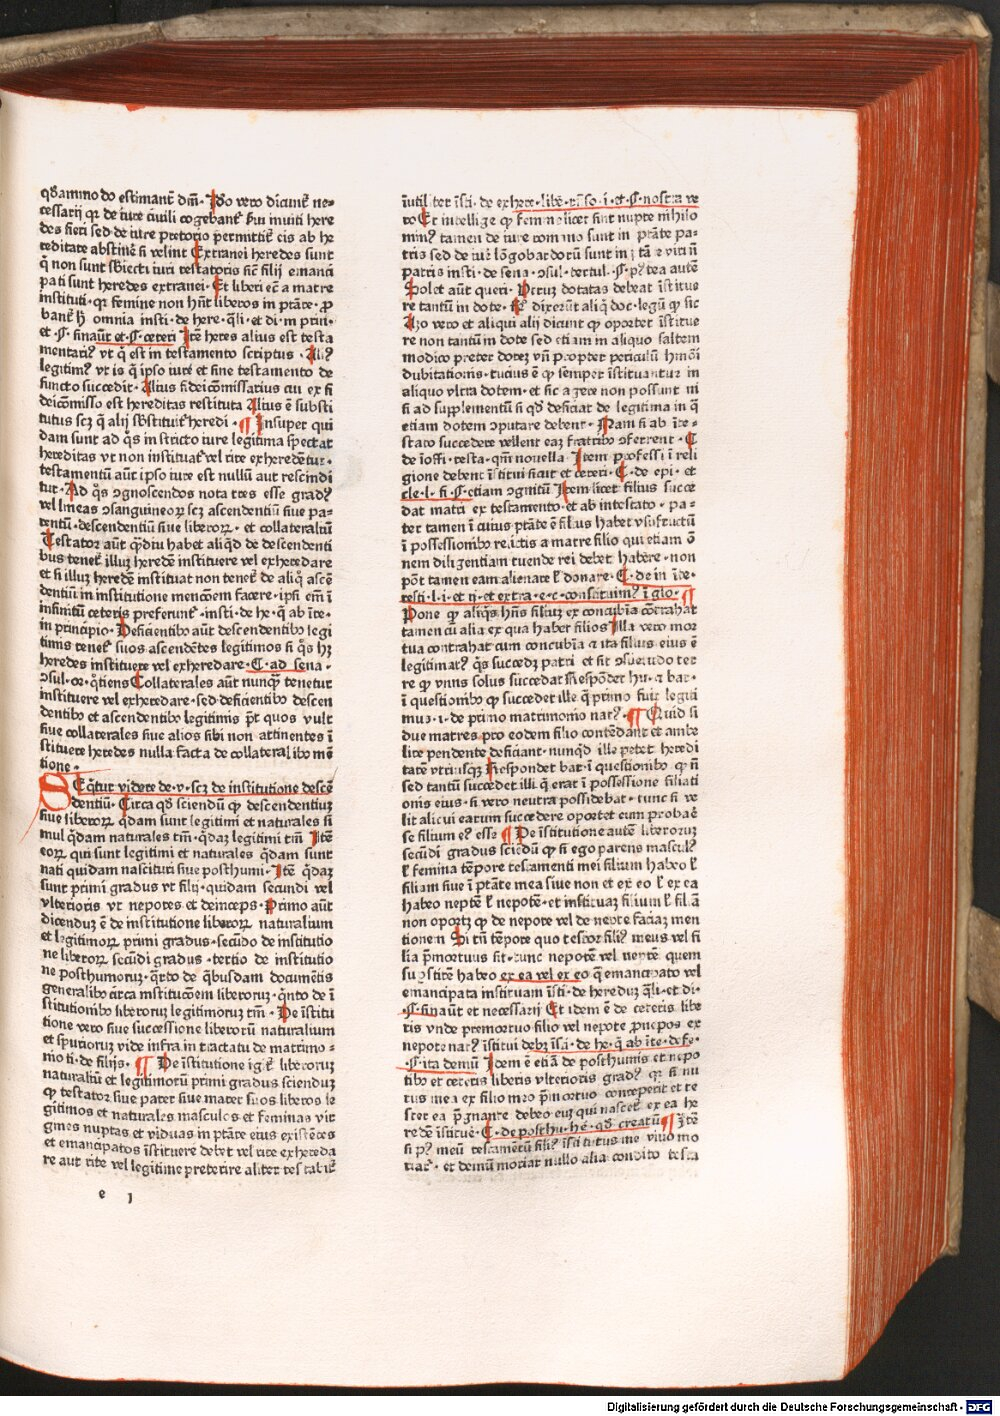 qḋammodo estimant̄ dm̄· Iḋo vero dicunt̄ ne⸗
cessarij qꝛ de iure ciuili cogebant̄ siui inuiti here
des fieri sed de iure pretorio permittit̄ eis ab he
reditate abstinē si velint Extranei heredes sunt
q̄ non sunt sb̄iecti iuri testatoris sic̄ filij emanci
pati sunt heredes extranei· Et liberi eē a matre
instituti· qꝛ femine non hn̄t liberos in ptāte· ꝓ
bant̄ h̄ omnia insti· de here· q̄li· et di· in prin·
et ·§· sina aūt et·§· ceteri Itē heres alius est testa
mentariꝰ vt q̄ est in testamento scriptus · Aliꝰ
legitimꝰ vt is q̄ ipso iure et sine testamento de
functo succedit· Alius fideicōmissarius cui ex fi
deicōmisso est hereditas restituta Alius ē substi
tutus scꝫ q̄ alij sb̄stituit̄ heredi · ¶ Insuper qui
dam sunt ad q̄s in stricto iure legitima spectat
hereditas vt non instituat̄ vel rite exheredēt̄·
testamentū aūt ipso iure est nullū aut rescindi
tur· Ad q̄s ꝯgnoscendos nota tres esse gradꝰ
vel lineas ꝯsanguineoꝝ scꝫ ascendentiū siue pa⸗
rentū· descendentiū siue liberoꝝ· et collateraliū
Testator aūt q̄diu habet aliqḋ de descendenti
bus tenet̄ illuꝫ heredē instituere vel exheredare
et si illuꝫ heredē instituat non tenet̄ de aliq̄ ascē
dentiū in institutione mencōem facere· ipsi em̄ ī
infinitū ceteris preferunt̄ · insti· de he· q̄ ab īte·
in principio· Deficientibꝰ aūt descendentibꝰ legi
timis tenet̄ suos ascendētes legitimos si q̄s hꝫ
heredes instituere vel exheredare· C· ad sena⸗
ꝯsul· oꝛ· q̄tiens Collaterales aūt nunq̄ꝫ tenetur
instituere vel exheredare· sed deficientibꝰ descen
dentibꝰ et ascendentibꝰ legitimis pt̄ quos vult
siue collaterales siue alios sibi non attinentes ī
stituere heredes nulla facta de collateralibꝰ mē
tione·
SEq̄tur videre de·v· scꝫ de institutione descē
dentiū· Circa qḋ sciendū qꝫ descendentiuꝫ
siue liberoꝝ q̄dam sunt legitimi et naturales si
mul q̄dam naturales tm̄· q̄daꝫ legitimi tm̄ Itē
eoꝝ qui sunt legitimi et naturales q̄dam sunt
nati quidam nascituri siue posthumi· Itē q̄daꝫ
sunt primi gradus vt filij· quidam secundi vel
vlterioris vt nepotes et deinceps· Primo aūt
dicenduꝫ ē de institutione liberoꝝ naturalium
et legitimoꝝ primi gradus· secūdo de institutio
ne liberoꝝ secūdi gradus · tertio de institutio
ne posthumoruꝫ· q̄rto de q̄busdam documētis
generalibꝰ circa institucōem liberoruꝫ· q̄nto de ī
stitutionibꝰ liberoruꝫ legitimoruꝫ tm̄ · De īstitu
tione vero siue successione liberorū naturalium
et spuriorum vide infra in tractatu de matrimo⸗
nio ti· de filijs· ¶ De īstitutione ig̅t̄ liberoruꝫ
naturaliū et legitimorū primi gradus sciendum
qꝫ testator siue pater siue mater suos liberos le
gitimos et naturales masculos et feminas vir
gines nuptas et viduas in ptāte eius existētes
et emancipatos īstituere debet vel rite exhereda
re aut rite vel legitime preterire aliter testab it̄
e j
īutiliter īsti· de exhere· libē· rn̄so·i·et·§· nostra ve
ro Et intellige qꝫ feminę licet sint nupte nihilo
minꝰ tamen de iure communi sunt in ptāte pa⸗
tris sed de iure lōgobardorū sunt in ptāte viri vn̄
patris insti· de sena· ꝯsul· tertul· §· pꝫ tea autē
Solet aūt queri · Vtruꝫ dotatas debeat īstitue
re tantū in dote · Et dixerūt aliq̄ doc· legū qꝫ sic
Aȝo vero et aliqui alij dicunt qꝫ oportet īstitue
re non tantū in dote sed etiam in aliquo saltem
modico preter doteꝫ vn̄ propter periculū hmōi
dubitationis· tucius ē qꝫ semper īstituantur in
aliquo vltra dotem· et sic agere non possunt ni
si ad supplementū si qḋ deficiat de legitima in q̄
etiam dotem ꝯputare debent· Nam si ab īte⸗
stato succedere vellent eaꝫ fratribꝰ ꝯferrent · C
de īoffi · testa· qm̄ nouella Item professi ī reli
gione debent īstitui sicut et ceteri· C· de epi· et
cle·l· si ·§· etiam ꝯgnitū Item licet filius succe
dat matri ex testamento et ab intestato · pa⸗
ter tamen ī cuius ptāte ē filius habet vsufructū
ī possessionibꝰ relictis a matre filio qui etiam ō
nem diligentiam tuende rei debet habere· non
pōt tamen eam alienare ł donare· C· de in īte·
resti·l·i· et ij· et extra·e·c·constitutꝰ ī glo· ¶
Pone qꝫ aliq̄s hn̄s filiuꝫ ex concubīa cōtrahat
tamen cū alia ex qua habet filios Illa vero mor
tua contrahat cum concubīa et ita filius eius ē
legitimatꝰ q̄s succedꝫ patri et sit ꝯsuetudo ter
re qꝫ vnus solus succedat Respōdet hu· et bar·
ī questionibꝰ qꝫ succedet ille q̄ primo fuit legiti
mus ·i· de primo matrimonio natꝰ· ¶ Quid si
due matres pro eodem filio contēdant et ambe
lite pendente deficiant· nunqd̄ ille petet heredi
tatē vtriusqꝫ Respondet bar· ī questionibꝰ qꝫ nō
sed tantū succedet illi q̄ erat ī possessione filiati
onis eius· si vero neutra possidebat · tunc si ve
lit alicui earum succedere oportet eum probaꝛ
se filium eꝰ esse ¶ De īstitutione autē liberoruꝫ
secūdi gradus sciēdū qꝫ si ego parens masculꝰ
ł femina tēpore testamenti mei filium habeo ł
filiam siue ī ptāte mea siue non et ex eo ł ex ea
habeo neptē ł nepotē· et instituaꝫ filium ł filiā
non oportꝫ qꝫ de nepote vel de nepte faciaꝫ men
tionem Si tn̄ tēpore quo testor filiꝰ meus vel fi
lia p̄mortuus sit· tunc nepotē vel neptē quem
suꝑstitē habeo ex ea vel ex eo q̄ emancipato vel
emancipata instituam īsti· de hereduꝫ q̄li· et di·
·§· sina aūt et necessarij Et idem ē de ceteris libe
ris vnde premortuo filio vel nepote pronepos ex
nepote natꝰ īstitui debꝫ īsti· de he· q̄ ab īte· defe·
·§· ita demū Idem ē etiā de posthumis et nepo
tibꝰ et ceteris liberis vlterioris gradꝰ qꝛ si nu
rus mea ex filio meo p̄mortuo conceperit et te
stor ea p̄gnante debeo euꝫ qui nascet̄ ex ea he
redē īstituē· C· de posthu· hē· qḋ creatū ¶ Itē
si pꝰ meū testamētū filiꝰ īstitutus me viuo mo
riat̄ · et demū moriar nullo alia condito testa
Digitalisierung gefördert durch die Deutsche Forschungsgemeinschaft · DFG